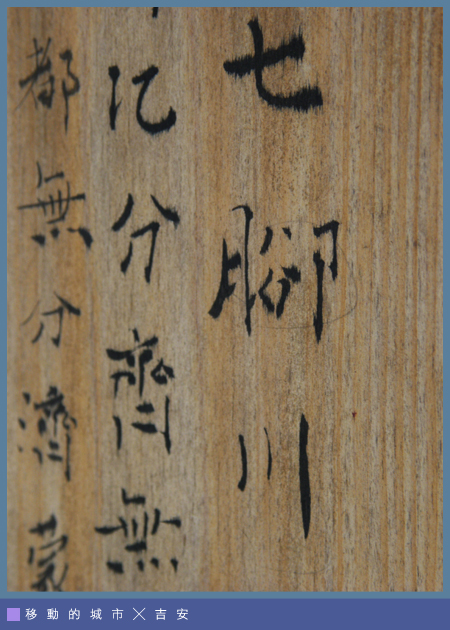 七腳川
分齊無
都無分濟蒙
移動的城市╳吉安